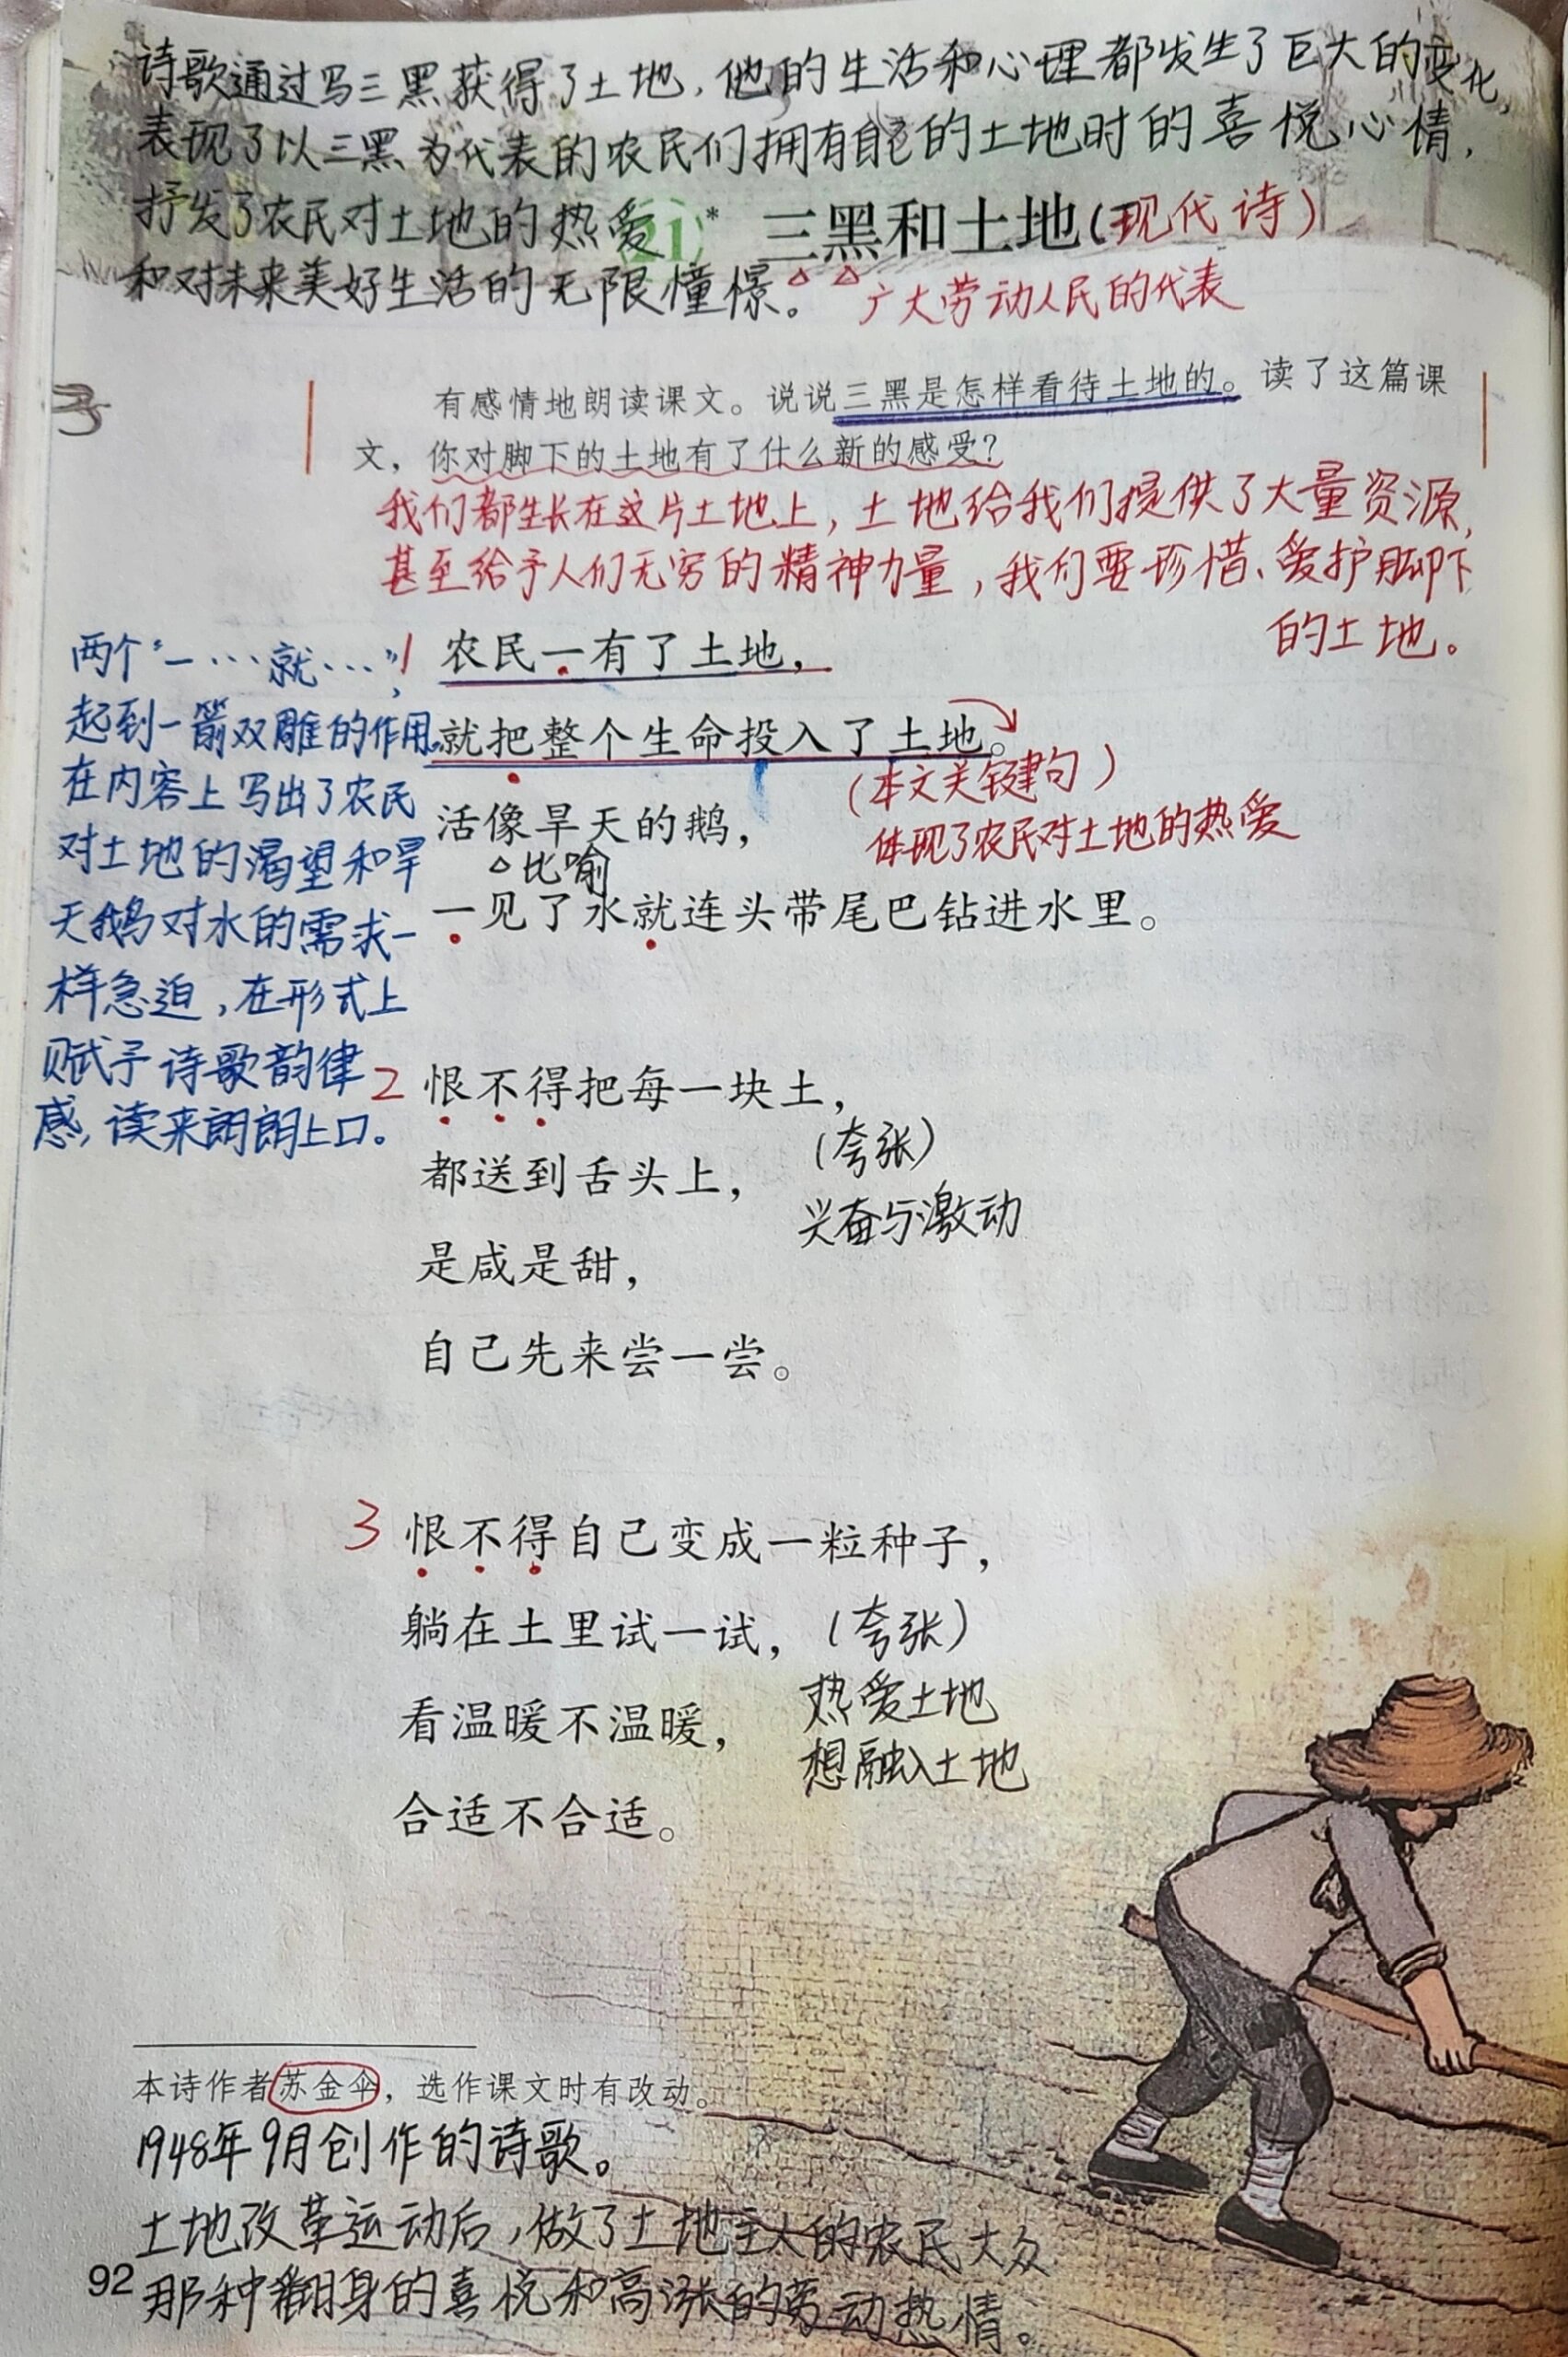 诗歌通过写三黑获得了土地，他的生活和心理都发生了巨大的变化，
表现了以三黑为代表的农民们拥有自己的土地时的喜悦心情，
抒发了农民对土地的热爱
和对未来美好生活的无限憧憬。
21* 三黑和土地(现代诗)
广大劳动人民的代表
有感情地朗读课文。说说三黑是怎样看待土地的。读了这篇课
文，你对脚下的土地有了什么新的感受？
我们都生长在这片土地上，土地给我们提供了大量资源，
甚至给予人们无穷的精神力量，我们要珍惜、爱护脚下
的土地。
两个“一…就…”，
起到一箭双雕的作用。
在内容上写出了农民
对土地的渴望和旱
天鹅对水的需求一
样急迫，在形式上
赋予诗歌韵律
感，读来朗朗上口。
1 农民一有了土地，
就把整个生命投入了土地。
(本文关键句)
体现了农民对土地的热爱
活像旱天的鹅，
比喻
一见了水就连头带尾巴钻进水里。
2 恨不得把每一块土，
(夸张)
都送到舌头上，
兴奋与激动
是咸是甜，
自己先来尝一尝。
3 恨不得自己变成一粒种子，
躺在土里试一试，(夸张)
看温暖不温暖，
热爱土地
想融入土地
合适不合适。
本诗作者苏金伞，选作课文时有改动。
1948年9月创作的诗歌。
土地改革运动后，做了土地主人的农民大众
那种翻身的喜悦和高涨的劳动热情。
92